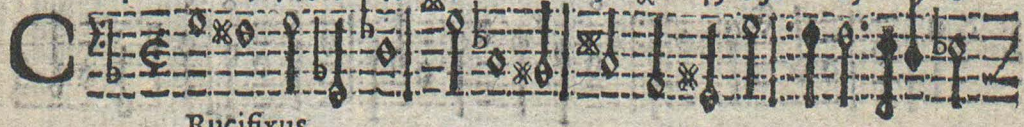 C
Rucifixus